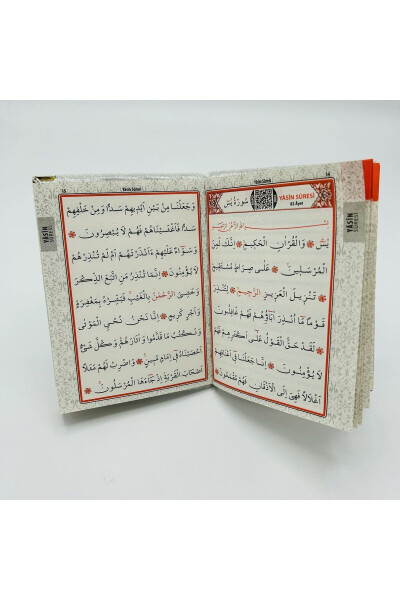 Yâsîn Sûresi
YÂSÎN SÛRESİ
83 Âyet
سُورَةُ يٰسٓ
بِسْمِ اللّٰهِ الرَّحْمٰنِ الرَّحِيمِ
يٰسٓ وَالْقُرْاٰنِ الْحَكِيمِ اِنَّكَ لَمِنَ
الْمُرْسَلِينَ عَلٰى صِرَاطٍ مُسْتَقِيمٍ
تَنْزِيلَ الْعَزِيزِ الرَّحِيمِ لِتُنْذِرَ
قَوْمًا مَٓا اُنْذِرَ اٰبَٓاؤُهُمْ فَهُمْ غَافِلُونَ
لَقَدْ حَقَّ الْقَوْلُ عَلٰٓى اَكْثَرِهِمْ فَهُمْ
لَا يُؤْمِنُونَ اِنَّا جَعَلْنَا فِٓي اَعْنَاقِهِمْ
اَغْلَالًا فَهِيَ اِلَى الْاَذْقَانِ فَهُمْ مُقْمَحُونَ
YÂSÎN
SÛRESİ
Yâsîn Sûresi
وَجَعَلْنَا مِنْ بَيْنِ اَيْدِيهِمْ سَدًّا وَمِنْ خَلْفِهِمْ
سَدًّا فَاَغْشَيْنَاهُمْ فَهُمْ لَا يُبْصِرُونَ
وَسَوَٓاءٌ عَلَيْهِمْ ءَاَنْذَرْتَهُمْ اَمْ لَمْ تُنْذِرْهُمْ
لَا يُؤْمِنُونَ اِنَّمَا تُنْذِرُ مَنِ اتَّبَعَ الذِّكْرَ
وَخَشِيَ الرَّحْمٰنَ بِالْغَيْبِ فَبَشِّرْهُ بِمَغْفِرَةٍ
وَاَجْرٍ كَرِيمٍ اِنَّا نَحْنُ نُحْيِ الْمَوْتٰى
وَنَكْتُبُ مَا قَدَّمُوا وَاٰثَارَهُمْ وَكُلَّ شَيْءٍ
اَحْصَيْنَاهُ فِٓي اِمَامٍ مُبِينٍ وَاضْرِبْ لَهُمْ مَثَلًا
اَصْحَابَ الْقَرْيَةِ اِذْ جَٓاءَهَا الْمُرْسَلُونَ
YÂSÎN
SÛRESİ